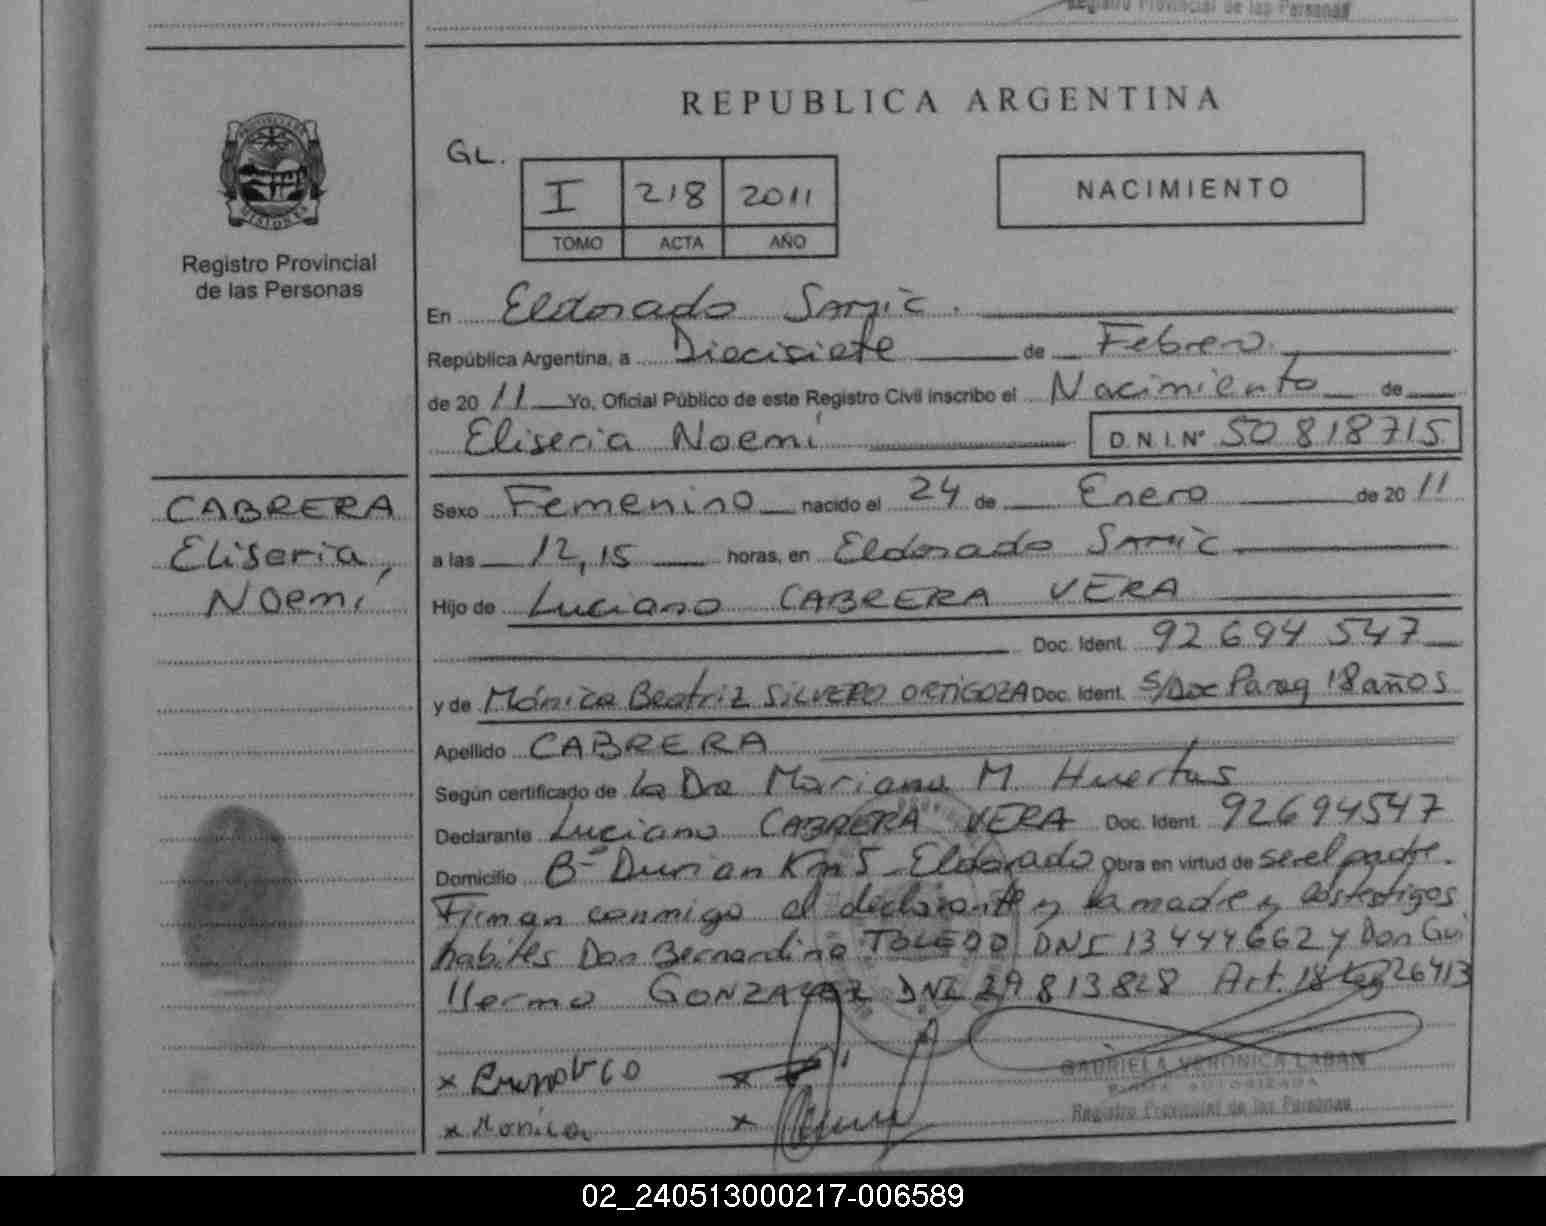 Registro Provincial de las Personas
REPUBLICA ARGENTINA
GL.
I 218 2011
TOMO ACTA AÑO
NACIMIENTO
Registro Provincial
de las Personas
En Eldorado Samic.
República Argentina, a Diecisiete de Febrero
de 2011 Yo, Oficial Público de este Registro Civil inscribo el Nacimiento de
Eliseria Noemí D.N.I. Nº 50818715
CABRERA
Eliseria,
Noemí
Sexo Femenino nacido el 24 de Enero de 2011
a las 12,15 horas, en Eldorado Samic
Hijo de Luciano CABRERA VERA
Doc. Ident. 92694547
y de Mónica Beatriz SILVERO ORTIGOZA Doc. Ident. S/Doc Parag 18 años
Apellido CABRERA
Según certificado de La Dra Mariana M. Huertas
Declarante Luciano CABRERA VERA Doc. Ident. 92694547
Domicilio Bº Km 5 Eldorado Obra en virtud de ser el padre.
Firman conmigo el declarante y la madre y los testigos
habiles Don Bernardino TOLEDO DNI 13444662 y Don Gui
llermo GONZALEZ DNI 29813828 Art. 18 Ley 26413
x
x
x Monica
x
GABRIELA VERONICA LABAN
FIRMA AUTORIZADA
Registro Provincial de las Personas
02_240513000217-006589